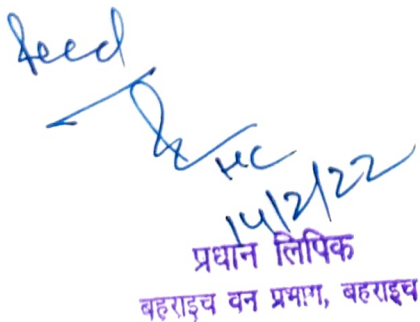 Recd
HC
14/2/22
प्रधान लिपिक
बहराइच वन प्रभाग, बहराइच